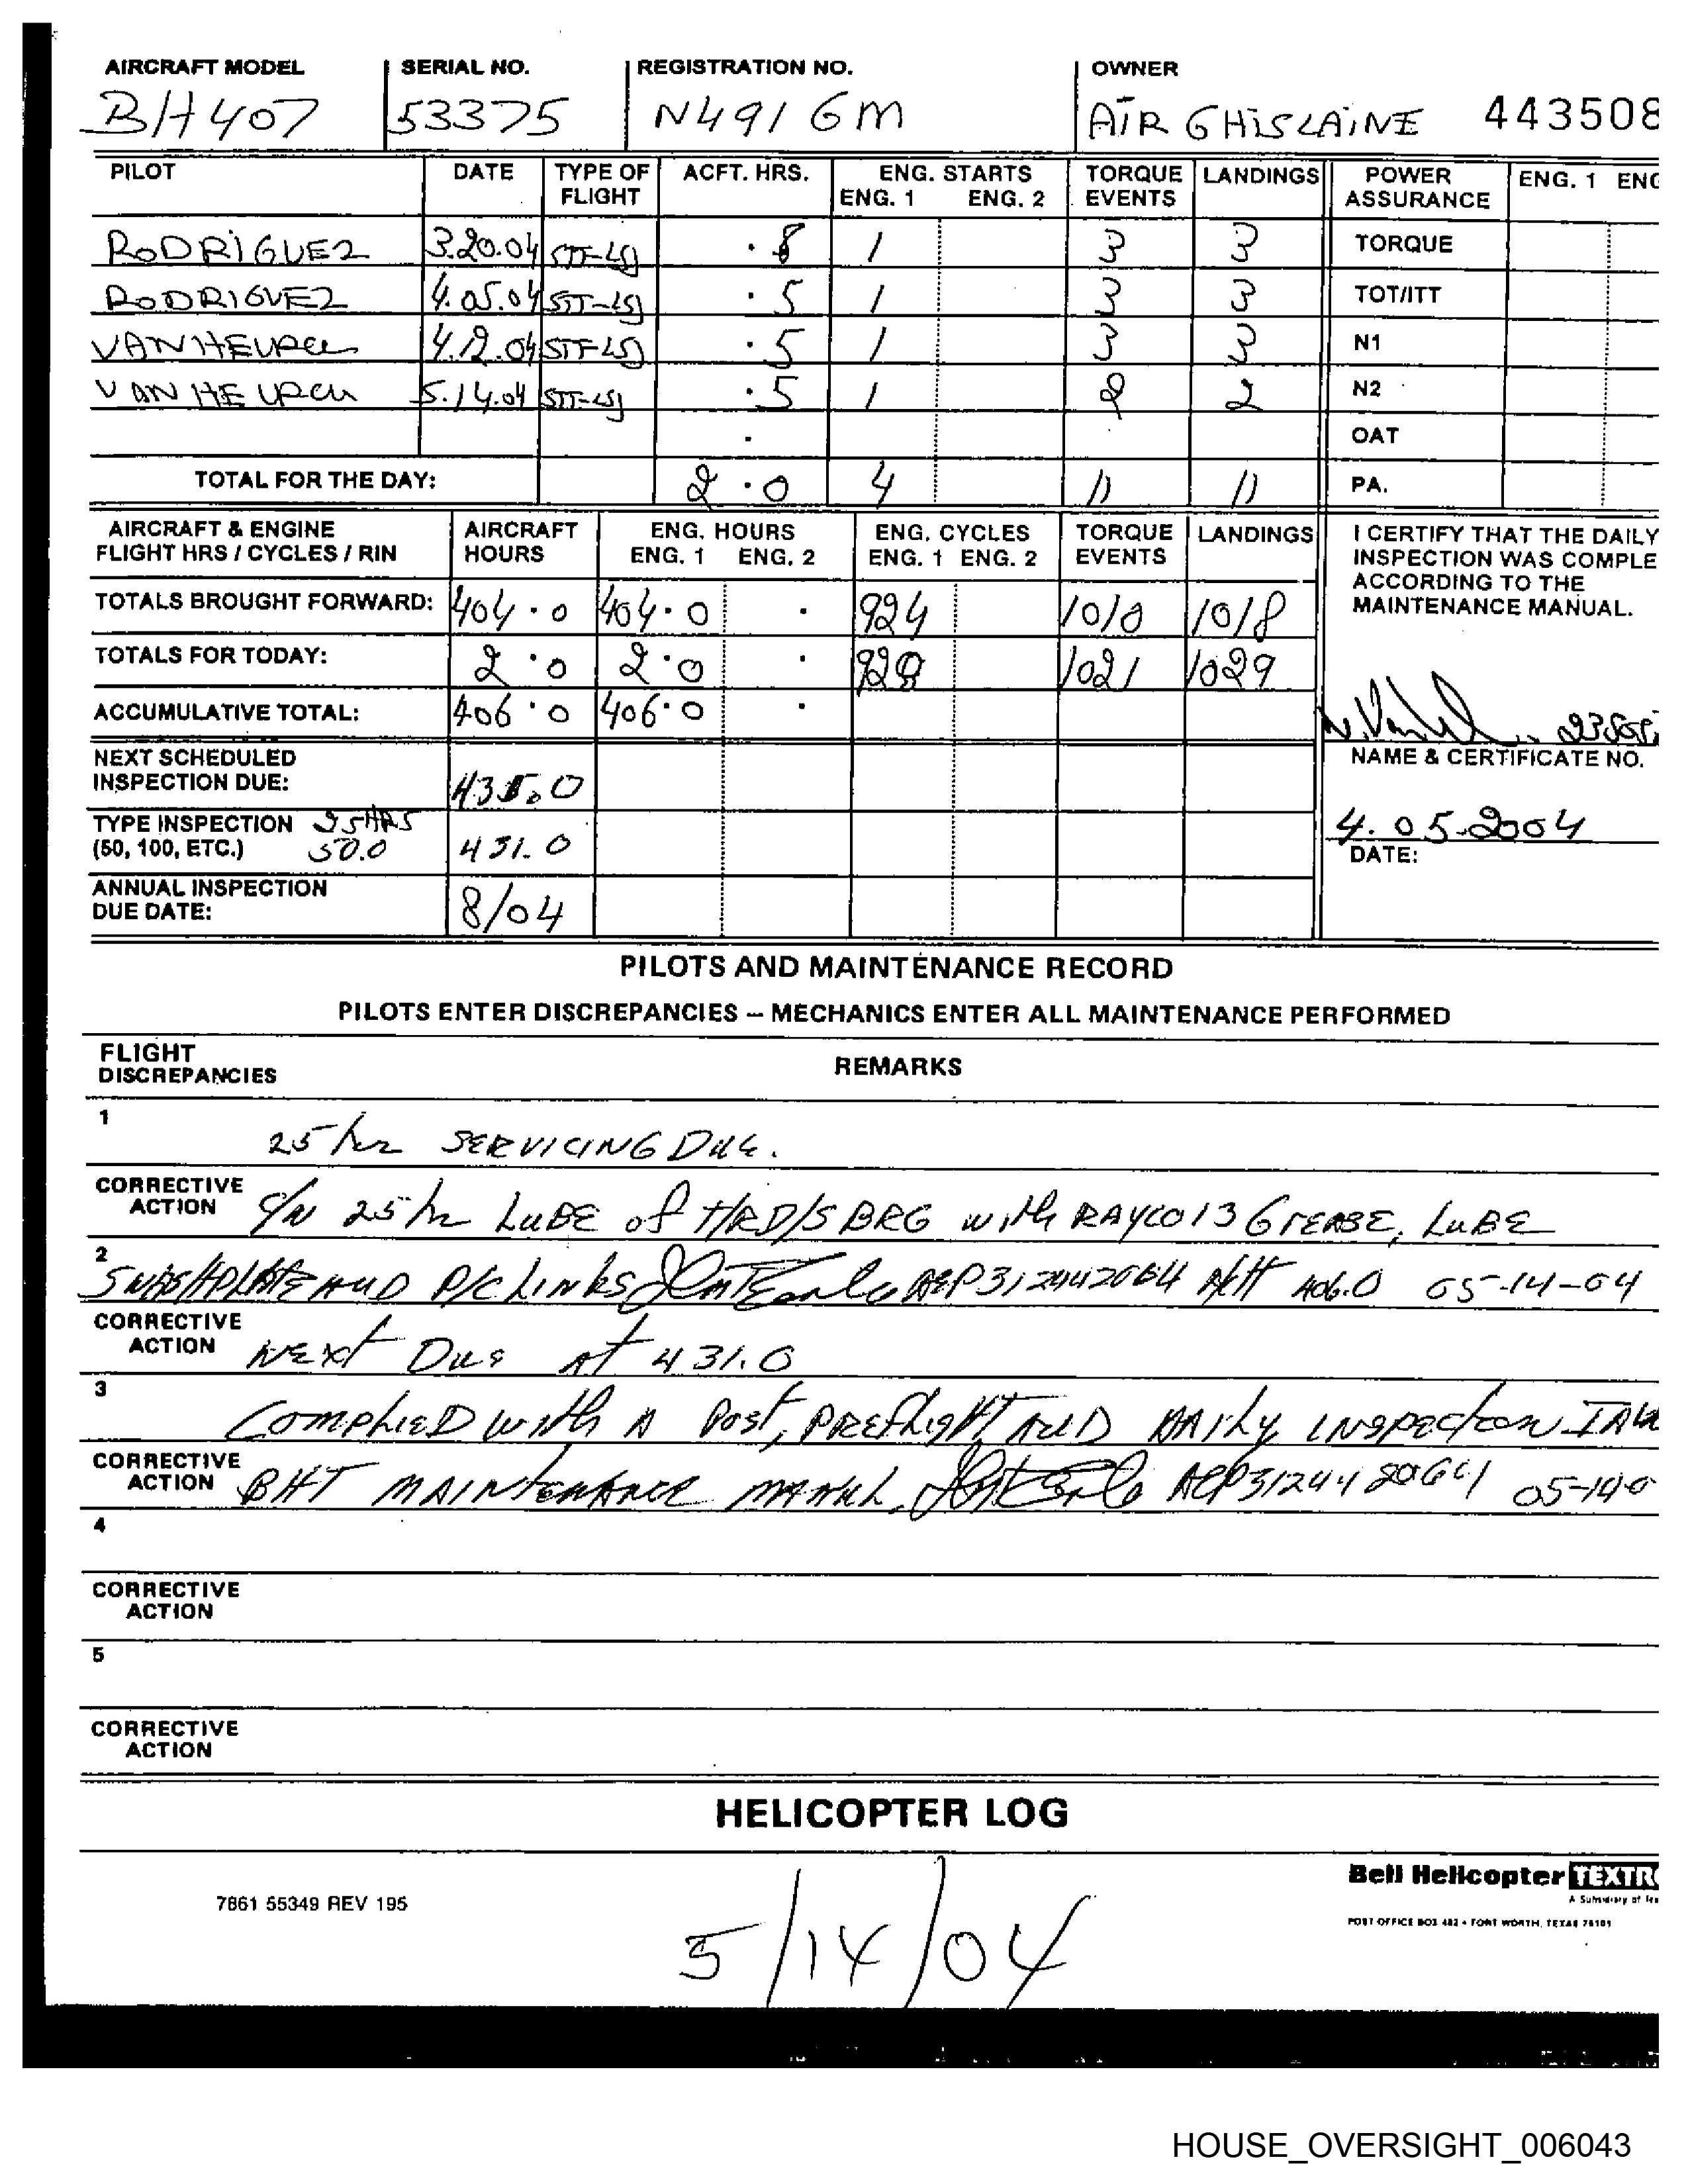 AIRCRAFT MODEL SERIAL NO. REGISTRATION NO. OWNER
B/H 407 53375 N491GM AIR GHISLAINE 443508
PILOT DATE TYPE OF FLIGHT ACFT. HRS. ENG. STARTS ENG. 1 ENG. 2 TORQUE EVENTS LANDINGS POWER ASSURANCE ENG. 1 ENG
RODRIGUEZ 3.20.04 . 1 3 3 TORQUE
RODRIGUEZ 4.05.04 STT-LSJ .5 1 3 3 TOT/ITT
4.12.04 .5 1 3 3 N1
5.14.04 STT-LSJ .5 1 2 2 N2
. OAT
TOTAL FOR THE DAY: 2.0 4 11 11 PA.
AIRCRAFT & ENGINE FLIGHT HRS / CYCLES / RIN AIRCRAFT HOURS ENG. HOURS ENG. 1 ENG. 2 ENG. CYCLES ENG. 1 ENG. 2 TORQUE EVENTS LANDINGS
I CERTIFY THAT THE DAILY
INSPECTION WAS COMPLE
ACCORDING TO THE
MAINTENANCE MANUAL.
TOTALS BROUGHT FORWARD: 404.0 404.0 . 924 1010 1018
TOTALS FOR TODAY: 2.0 2.0 . 928 1021 1029
ACCUMULATIVE TOTAL: 406.0 406.0 .
NAME & CERTIFICATE NO.
NEXT SCHEDULED
INSPECTION DUE:
TYPE INSPECTION 25 HRS
(50, 100, ETC.) 50.0 431.0
4.05.2004
DATE:
ANNUAL INSPECTION
DUE DATE: 8/04
PILOTS AND MAINTENANCE RECORD
PILOTS ENTER DISCREPANCIES – MECHANICS ENTER ALL MAINTENANCE PERFORMED
FLIGHT
DISCREPANCIES REMARKS
1 25 hr SERVICING DUE.
CORRECTIVE
ACTION C/W 25 hr LUBE of T/R D/S BRG with RAYCO 13 GREASE, LUBE
2 SWASHPLATE AND P/C LINKS 406.0 05-14-04
CORRECTIVE
ACTION NEXT DUE AT 431.0
3 COMPLIED with A Post, PREflight AND DAILY INSPECTION IAW
CORRECTIVE
ACTION BHT MAINTENANCE
4
CORRECTIVE
ACTION
5
CORRECTIVE
ACTION
HELICOPTER LOG
7861 55349 REV 195
Bell Helicopter TEXTR
A Subsidiary of Tex
POST OFFICE BOX 482 • FORT WORTH, TEXAS 76101
5/14/04
HOUSE_OVERSIGHT_006043